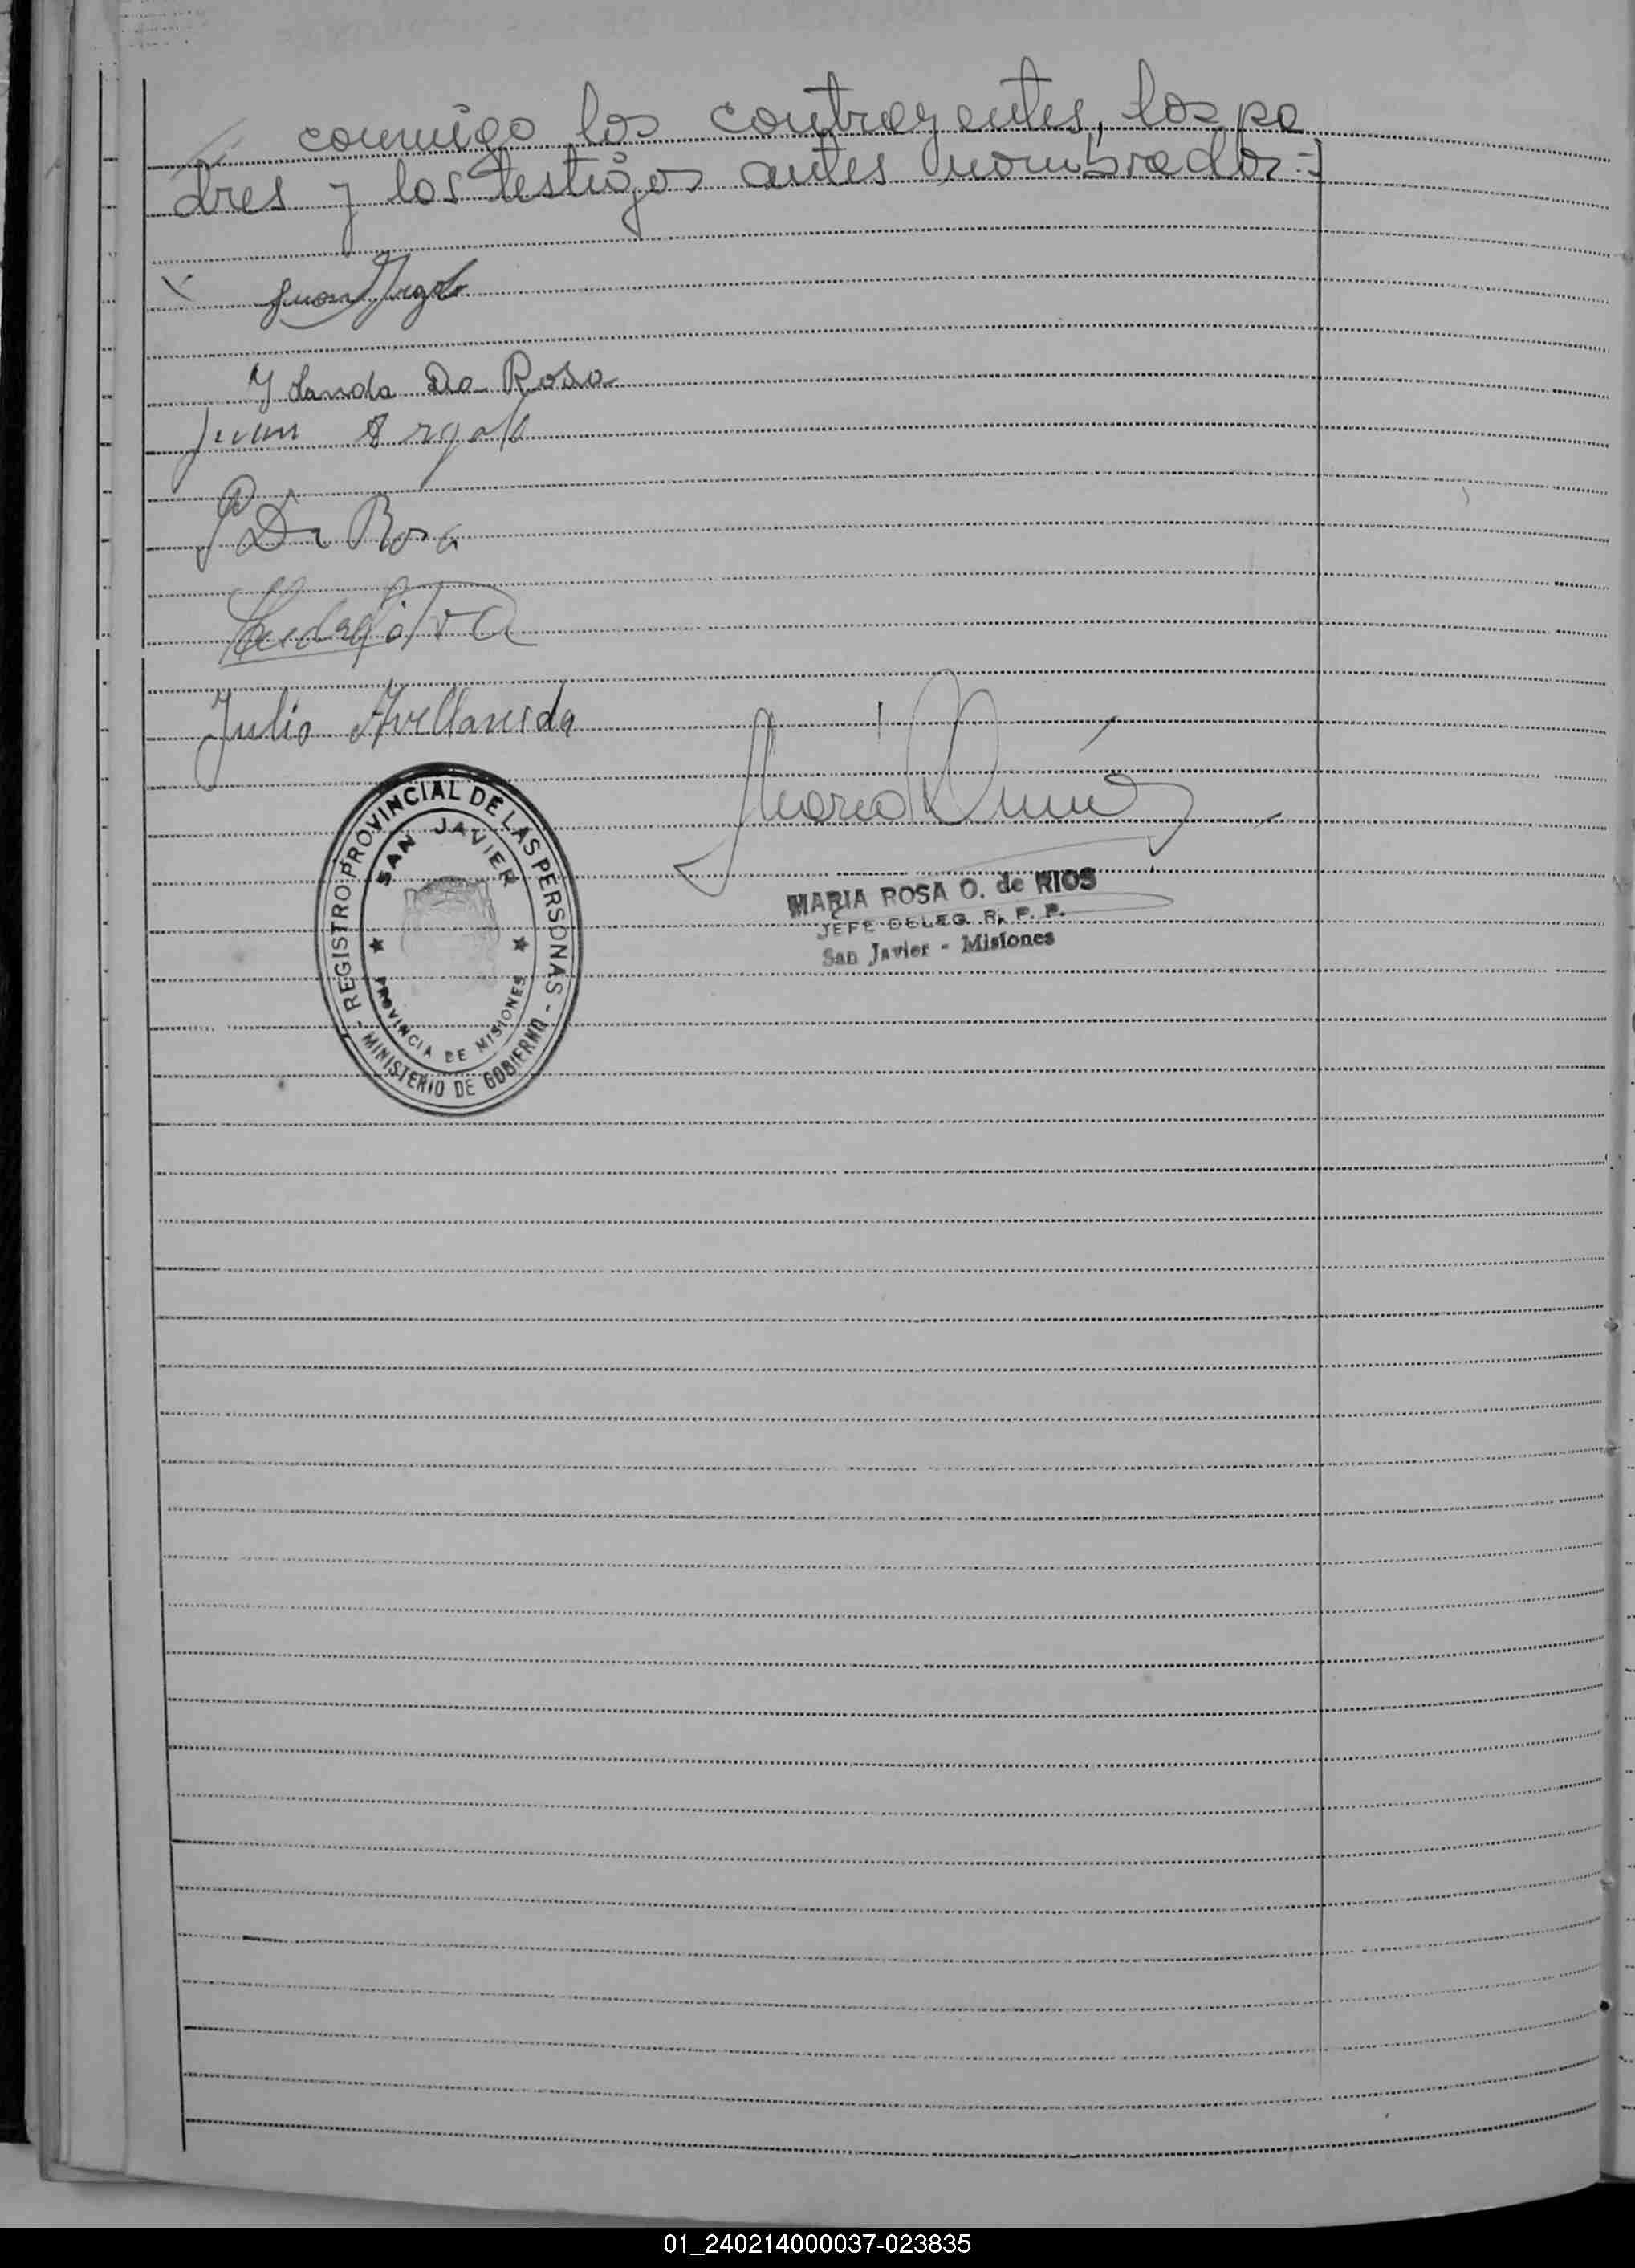 conmigo los contrayentes, los pa
dres y los testigos antes nombrados.=
Juan
Ylanda Da Rosa
Juan
Da Rosa
Julio Avellaneda
- REGISTRO PROVINCIAL DE LAS PERSONAS -
SAN JAVIER
PROVINCIA DE MISIONES
MINISTERIO DE GOBIERNO
MARIA ROSA O. de RIOS
JEFE DELEG. R. P. P.
San Javier - Misiones
01_240214000037-023835